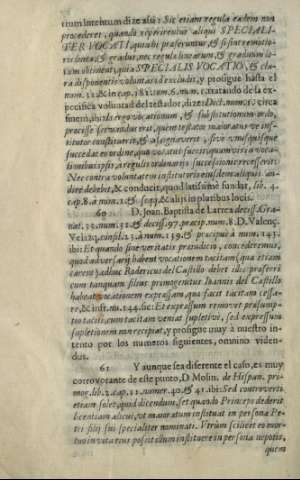 tium in tribum 2 è asiù: Sic etiam regula eadem non
procederet, quandò reperirentur aliqui SPECIALI-
TER VOCATI, quia ibi præferuntur, & si sint remotio-
ris lineæ, & gradus, nec regula linearum, & graduum lo-
cum obtinent, quia SPECIALIS VOCATIO, & cla-
ra disponentis voluntas id excludit, y prosigue hasta el
num. 12. & in cap. 18. num. 6. num. tratando de la ex-
pecifica voluntad del testador, dize: Dict. num. 6. circa
finem, ibi: In ergo vocationum, & substitutionum ordo,
præcisse servandus erit, quem testator maioratus ve ins-
titutor constituerit, & assignaverit, sive unusquisque
succedat en ordine, quo vocatus fuerit, quam veris à vocatio-
nibus ipsis, à regulis ordinarijs successionis recesserit:
Nec contra voluntatem institutoris eiusdem aliquis au-
dire debebit, & conducit, quod latissimè fundat, lib. 4.
cap. 8. à nim. 1. & seqq. & alijs in pluribus locis.
60 D. Joan. Baptista de Larrea decis. Gra-
nat. 32. num. 31. & decis. 97. præcip. num. 8. D. Valenç.
Velazq. consil. 13. à num. 139. & præcipuè à num. 145.
ibi: Et quando sine veritatis præiudicio, concederemus,
quod adversarij habent vocationem tacitam (qua etiam
carent) adhuc Rodericus del Castillo debet illis præferri
cum tanquam filius primogenitus Ioannis del Castillo
habeat vocationem expressam, quæ facit tacitam cessa-
re, & inf. nu. 144. sic: Et expressum removet præsump-
to tacitè, cum tacitum veniat supletivè, sed expressum
supletionem non recipiat, y prosigue muy à nuestro in-
tento por los numeros siguientes, omnino viden-
dus.
61 Y aunque sea diferente el caso, es muy
corrovorante de este punto, D. Molin. de Hispan. pri-
mog. lib. 2. cap. 11. numer. 40. & 41. ibi: Sed controverti
etiam solet, quid dicendum, set. quando Princeps dederit
licentiam alicui, ut maioratum instituat in persona Pe-
tri filij sui specialiter nominati. Utrum scilicet eo mor-
tuo in vita eius possit illum instituere in persona nepotis,
quem